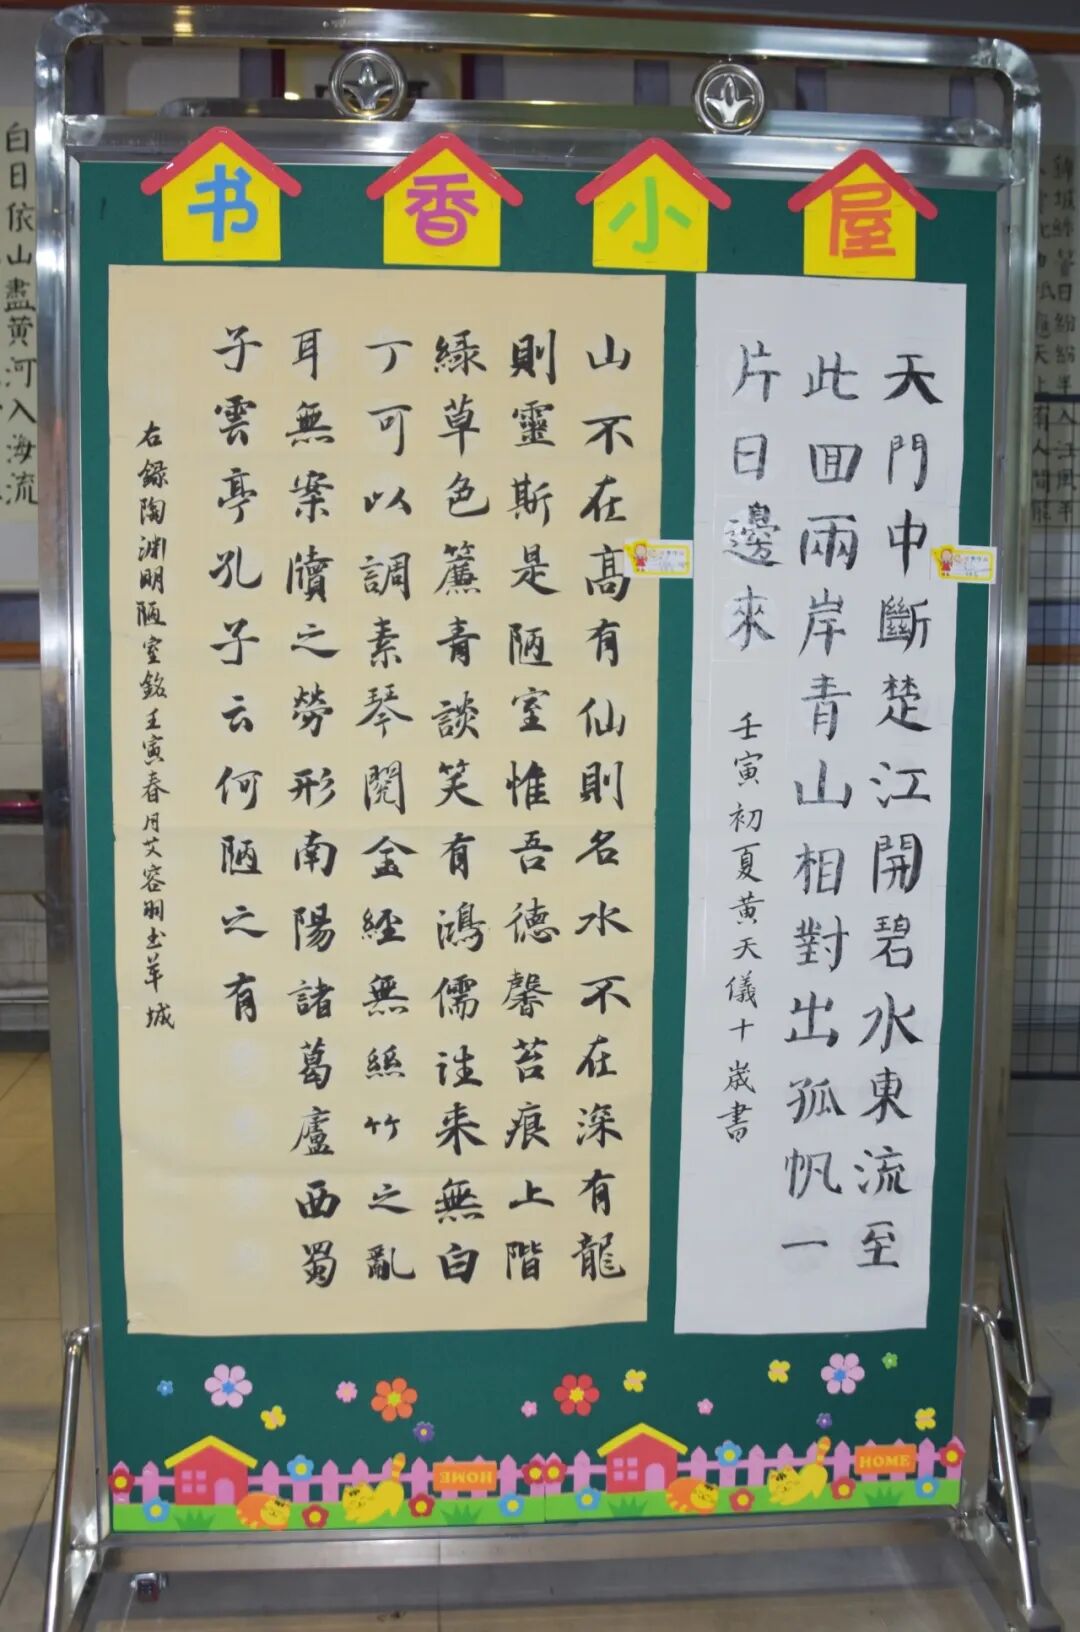 书香小屋
天門中斷楚江開碧水東流至
此回兩岸青山相對出孤帆一
片日邊來
壬寅初夏黃天儀十歲書
山不在高有仙則名水不在深有龍
則靈斯是陋室惟吾德馨苔痕上階
綠草色簾青談笑有鴻儒往来無白
丁可以調素琴閱金經無絲竹之亂
耳無案牘之勞形南陽諸葛廬西蜀
子雲亭孔子云何陋之有
右錄陶渊明陋室銘壬寅春月艾容羽书羊城
白日依山盡黄河入海流
錦城絲管日紛紛半入江風半
HOME
HOME